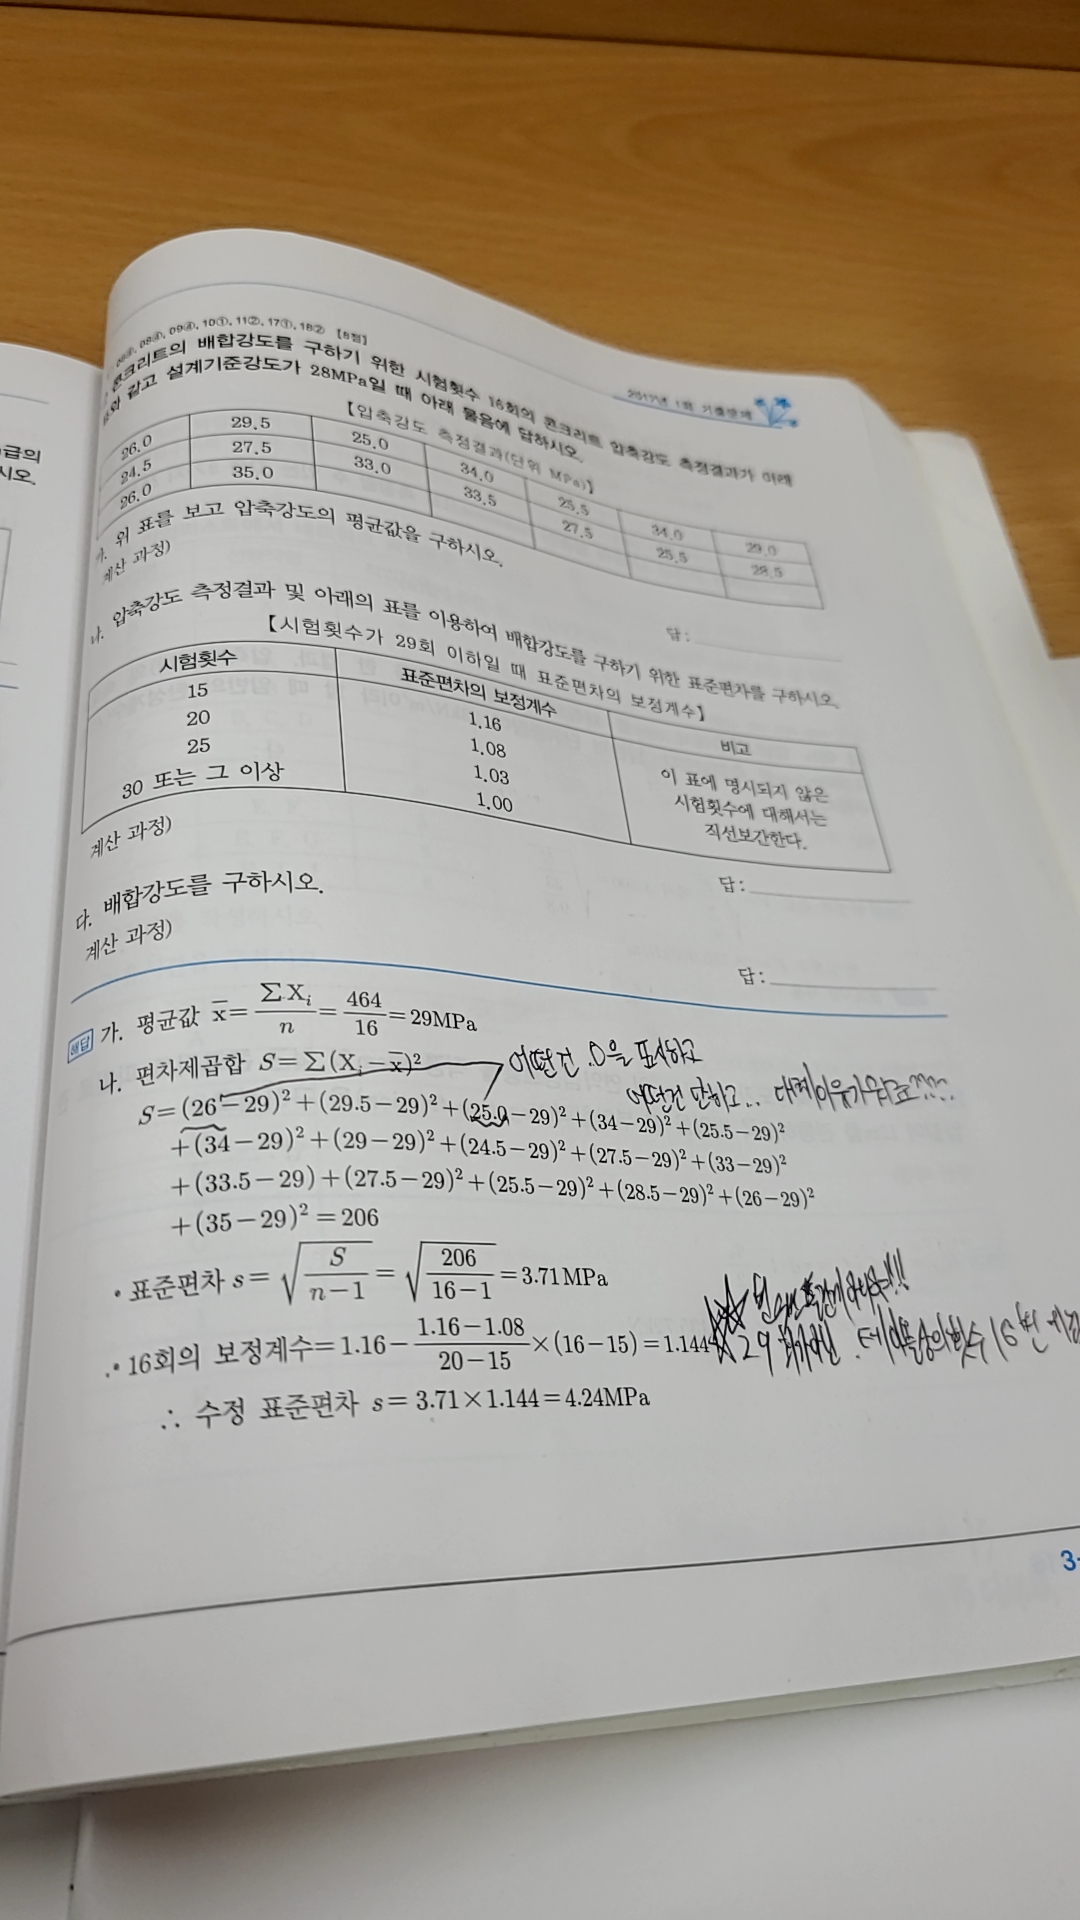 급의
시오.
08④, 09④, 10①, 11②, 17①, 18② 【8점】
콘크리트의 배합강도를 구하기 위한 시험횟수 16회의 콘크리트 압축강도 측정결과가 아래
와 같고 설계기준강도가 28MPa일 때 아래 물음에 답하시오.
2017년 1회 기출문제
【압축강도 측정결과(단위 MPa)】
26.0 29.5 25.0 34.0 25.5 34.0 29.0
24.5 27.5 33.0 33.5 27.5 25.5 28.5
26.0 35.0
가. 위 표를 보고 압축강도의 평균값을 구하시오.
계산 과정)
답:
나. 압축강도 측정결과 및 아래의 표를 이용하여 배합강도를 구하기 위한 표준편차를 구하시오.
【시험횟수가 29회 이하일 때 표준편차의 보정계수】
시험횟수 표준편차의 보정계수 비고
15 1.16
20 1.08
25 1.03
30 또는 그 이상 1.00
이 표에 명시되지 않은
시험횟수에 대해서는
직선보간한다.
계산 과정)
답:
다. 배합강도를 구하시오.
계산 과정)
답:
해답 가. 평균값 x̄ = ΣXᵢ/n = 464/16 = 29MPa
나. 편차제곱합 S = Σ(Xᵢ − x̄)²
어떤건 .0을 표시하고
어떤건 안하고.. 대체 이유가 뭐죠????
S = (26 − 29)² + (29.5 − 29)² + (25.0 − 29)² + (34 − 29)² + (25.5 − 29)²
+ (34 − 29)² + (29 − 29)² + (24.5 − 29)² + (27.5 − 29)² + (33 − 29)²
+ (33.5 − 29) + (27.5 − 29)² + (25.5 − 29)² + (28.5 − 29)² + (26 − 29)²
+ (35 − 29)² = 206
• 표준편차 s = √(S/(n−1)) = √(206/(16−1)) = 3.71MPa
• 16회의 보정계수 = 1.16 − (1.16 − 1.08)/(20 − 15) × (16 − 15) = 1.144
29 횟수 16번
∴ 수정 표준편차 s = 3.71 × 1.144 = 4.24MPa
3-